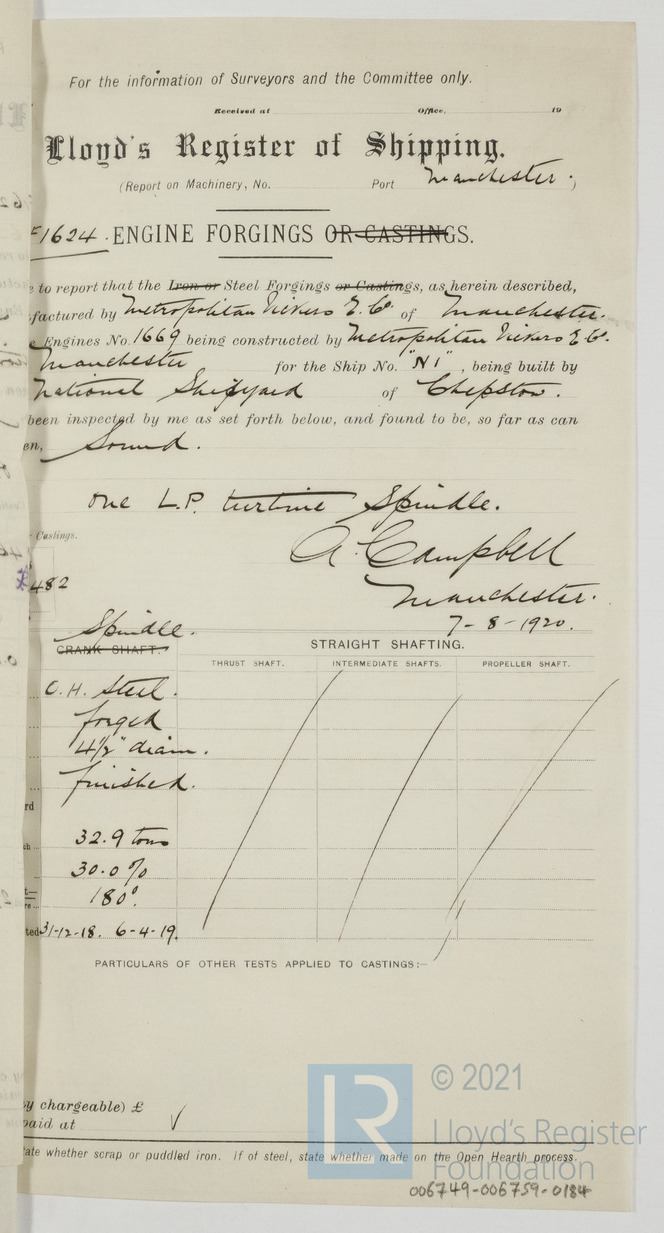 For the information of Surveyors and the Committee only.
Received at Office, 19
Lloyd's Register of Shipping.
(Report on Machinery, No. Port Manchester.)
1624. ENGINE FORGINGS OR CASTINGS.
to report that the Iron or Steel Forgings or Castings, as herein described,
factured by Metropolitan Vickers E. Co of Manchester.
Engines No. 1669 being constructed by Metropolitan Vickers E Co.
Manchester for the Ship No. "N1", being built by
National Shipyard of Chepstow.
been inspected by me as set forth below, and found to be, so far as can
en, Sound.
One L.P. turbine Spindle.
Castings.
A. Campbell
482
Manchester.
7-8-1920.
Spindle.
CRANK SHAFT. STRAIGHT SHAFTING.
THRUST SHAFT. INTERMEDIATE SHAFTS. PROPELLER SHAFT.
O.H. Steel.
forged
4½" diam.
finished.
rd
32.9 tons
30.0 %
180°.
ted 31-12-18. 6-4-19.
PARTICULARS OF OTHER TESTS APPLIED TO CASTINGS:—
y chargeable) £
paid at
ate whether scrap or puddled iron. If of steel, state whether made on the Open Hearth process.
© 2021
LR
Lloyd's Register
Foundation
006749-006759-0184